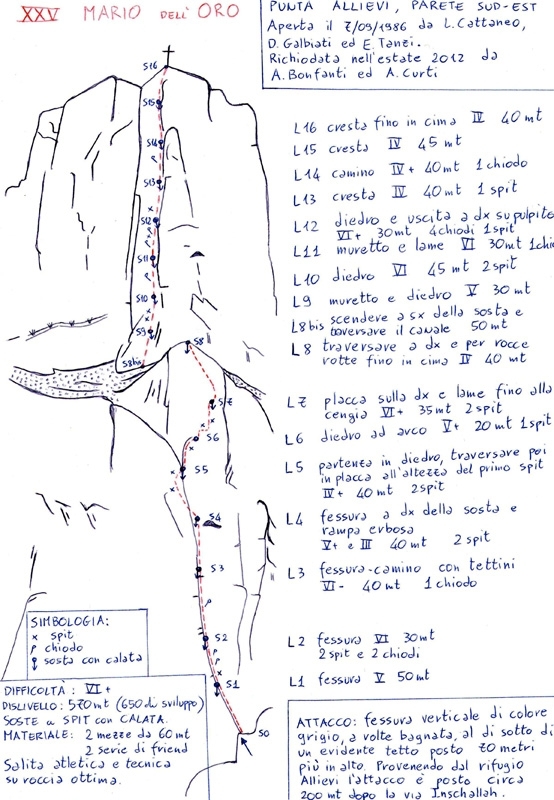 XXV MARIO DELL'ORO
PUNTA ALLIEVI, PARETE SUD-EST
Aperta il 7/09/1986 da L. Cattaneo,
D. Galbiati ed E. Tanzi.
Richiodata nell'estate 2012 da
A. Bonfanti ed A. Curti
L16 cresta fino in cima IV 40 mt
L15 cresta IV 45 mt
L14 camino IV+ 40mt 1 chiodo
L13 cresta IV 40 mt 1 spit
L12 diedro e uscita a dx su pulpito
VI+ 30mt 4chiodi 1spit
L11 muretto e lame VI 30mt 1chio
L10 diedro VI 45 mt 2 spit
L9 muretto e diedro V 30 mt
L8bis scendere a sx della sosta e
traversare il canale 50 mt
L8 traversare a dx e per rocce
rotte fino in cima IV 40 mt
L7 placca sulla dx e lame fino alla
cengia VI+ 35 mt 2 spit
L6 diedro ad arco V+ 20 mt 1 spit
L5 partenza in diedro, traversare poi
in placca all'altezza del primo spit
IV+ 40 mt 2spit
L4 fessura a dx della sosta e
rampa erbosa
V+ e III 40 mt 2 spit
L3 fessura-camino con tettini
VI- 40 mt 1 chiodo
L2 fessura VI 30mt
2 spit e 2 chiodi
L1 fessura V 50 mt
S16
S15
S14
S13
S12
S11
S10
S9
S8bis
S8
S7
S6
S5
S4
S3
S2
S1
S0
SIMBOLOGIA:
x spit
chiodo
sosta con calata
DIFFICOLTÀ: VI+
DISLIVELLO: 570mt (650 di sviluppo)
SOSTE a SPIT con CALATA.
MATERIALE: 2 mezze da 60mt
2 serie di friend
Salita atletica e tecnica
su roccia ottima.
ATTACCO: fessura verticale di colore
grigio, a volte bagnata, al di sotto di
un evidente tetto posto 70 metri
più in alto. Provenendo dal rifugio
Allievi l'attacco è posto circa
200 mt dopo la via Inschallah.